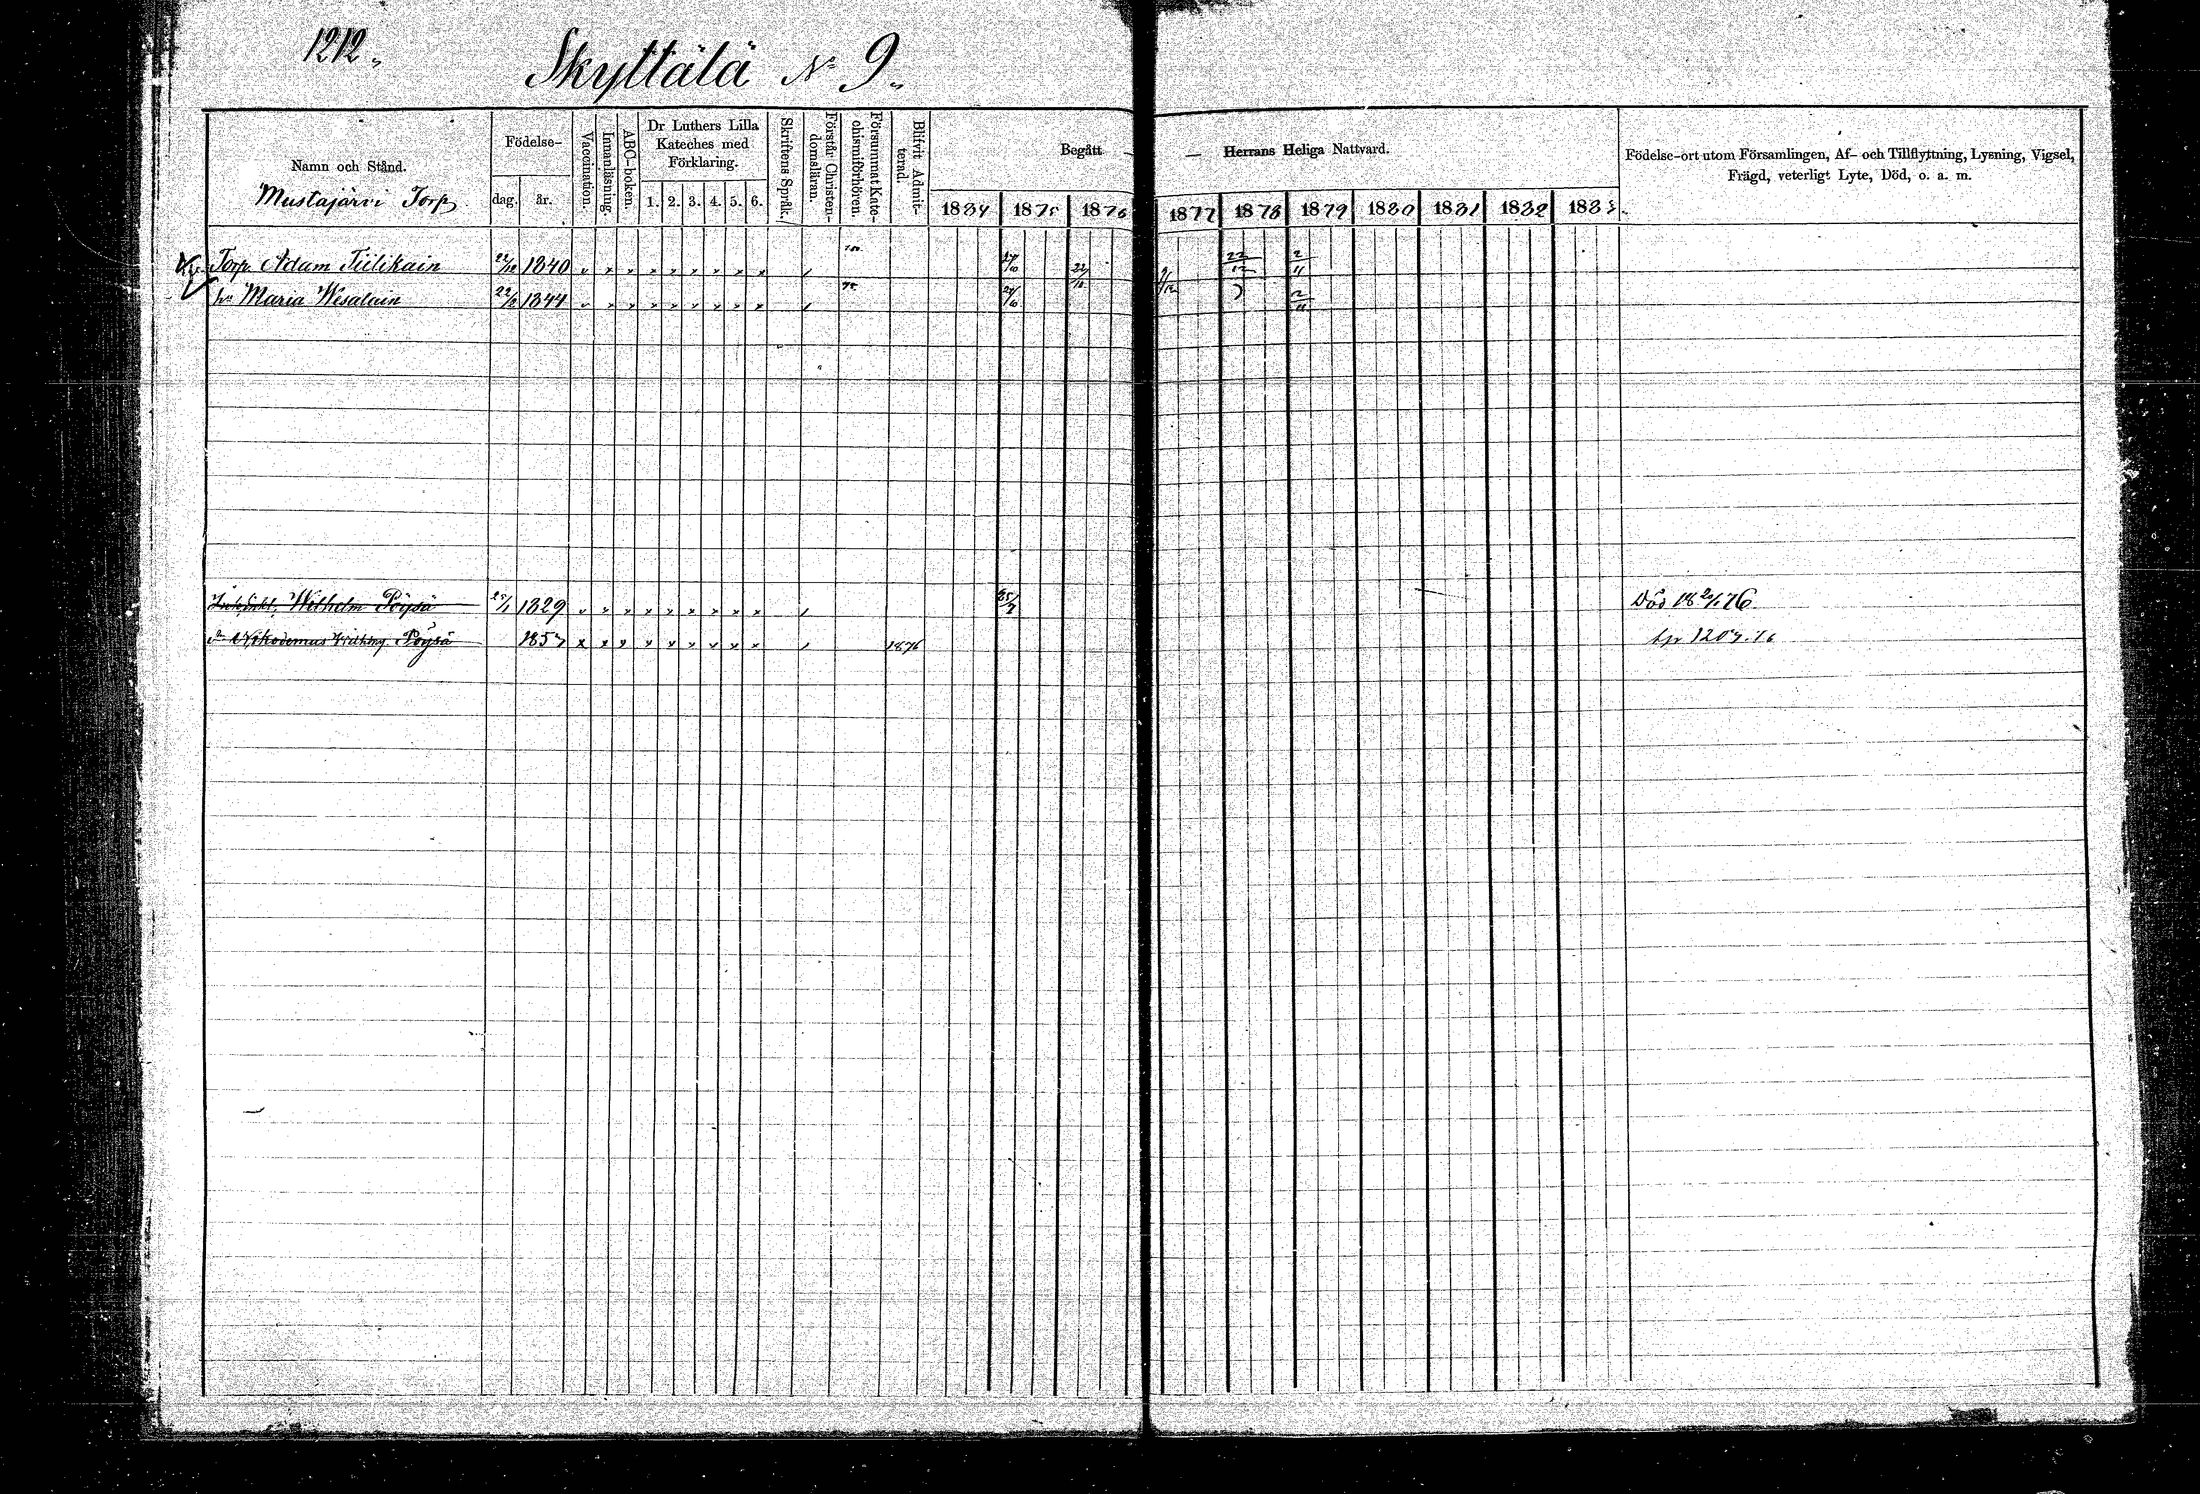 1212
Skyttälä No 9
Namn och Stånd.
Mustajärvi Torp
Födelse-
dag.
år.
Vaccination.
Innanläsning.
ABC-boken.
Dr Luthers Lilla
Kateches med
Förklaring.
1. 2. 3. 4. 5. 6.
Skriftens Språk.
Förstår Christen-
domsläran.
Försummat Kate-
chismiförhören.
Blifvit Admit-
terad.
Begått — — Herrans Heliga Nattvard.
1884 1875 1876 1877 1878 1879 1880 1881 1882 1883
Födelse-ort utom Församlingen, Af- och Tillflyttning, Lysning, Vigsel,
Frägd, veterligt Lyte, Död, o. a. m.
Torp. Adam Tiilikain 22/12 1840 27/10 22/10 9/12 22/12 2/11
hu Maria Wesalain 22/2 1844 75 27/10 2/11
Wilhelm Pöysä 25/1 1829 25/7 Död 18 2/1 76
Nikodemus Pöysä 1857 1876